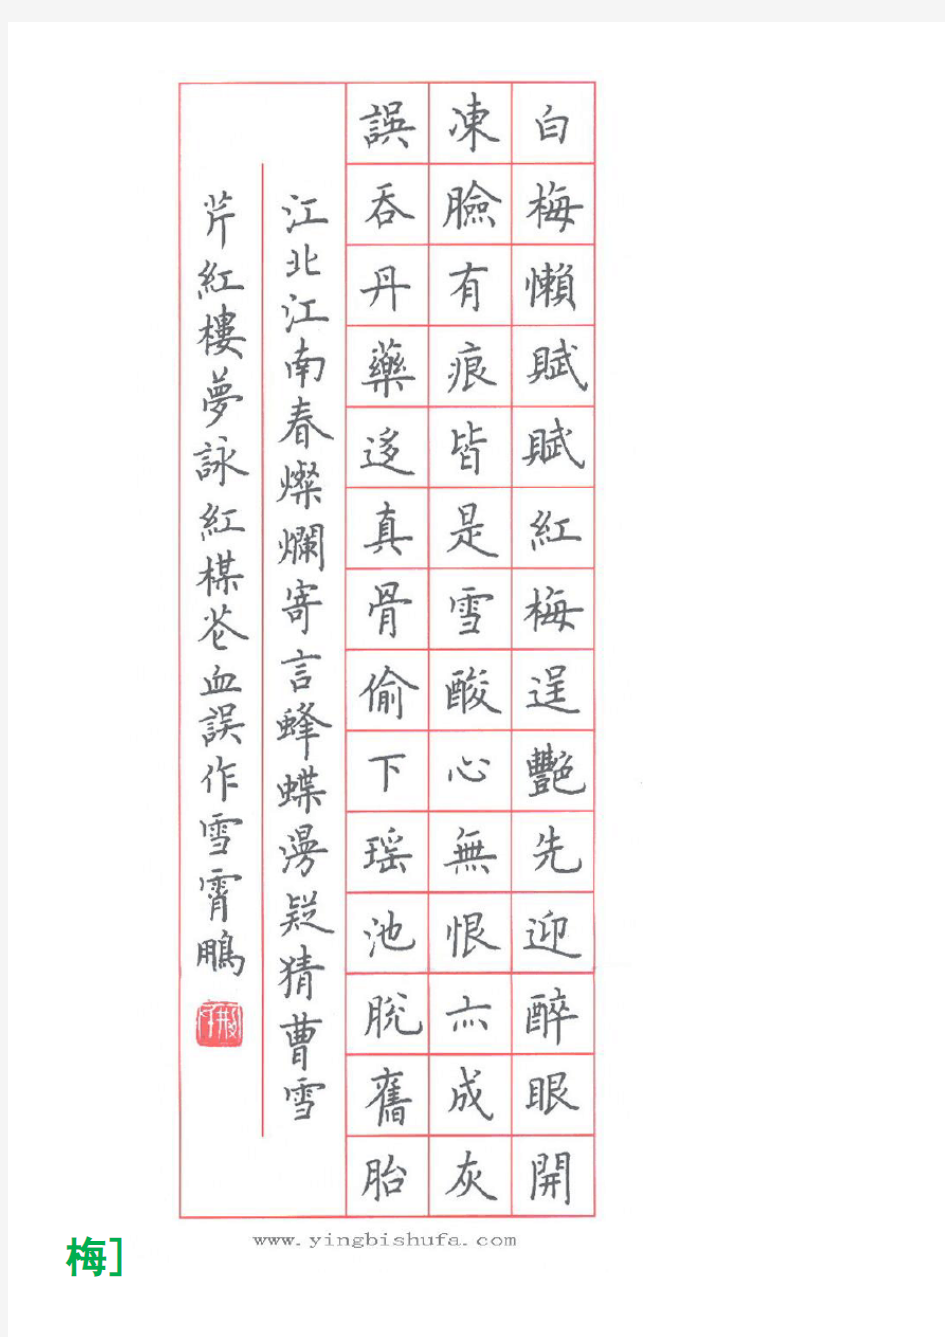 白梅懶賦賦紅梅逞艷先迎醉眼開
凍臉有痕皆是雪酸心無恨亦成灰
誤吞丹藥迻真骨偷下瑶池脫舊胎
江北江南春燦爛寄言蜂蝶漫疑猜曹雪
芹紅樓夢詠紅楳花血誤作雪霄鵬
www.yingbishufa.com
梅]